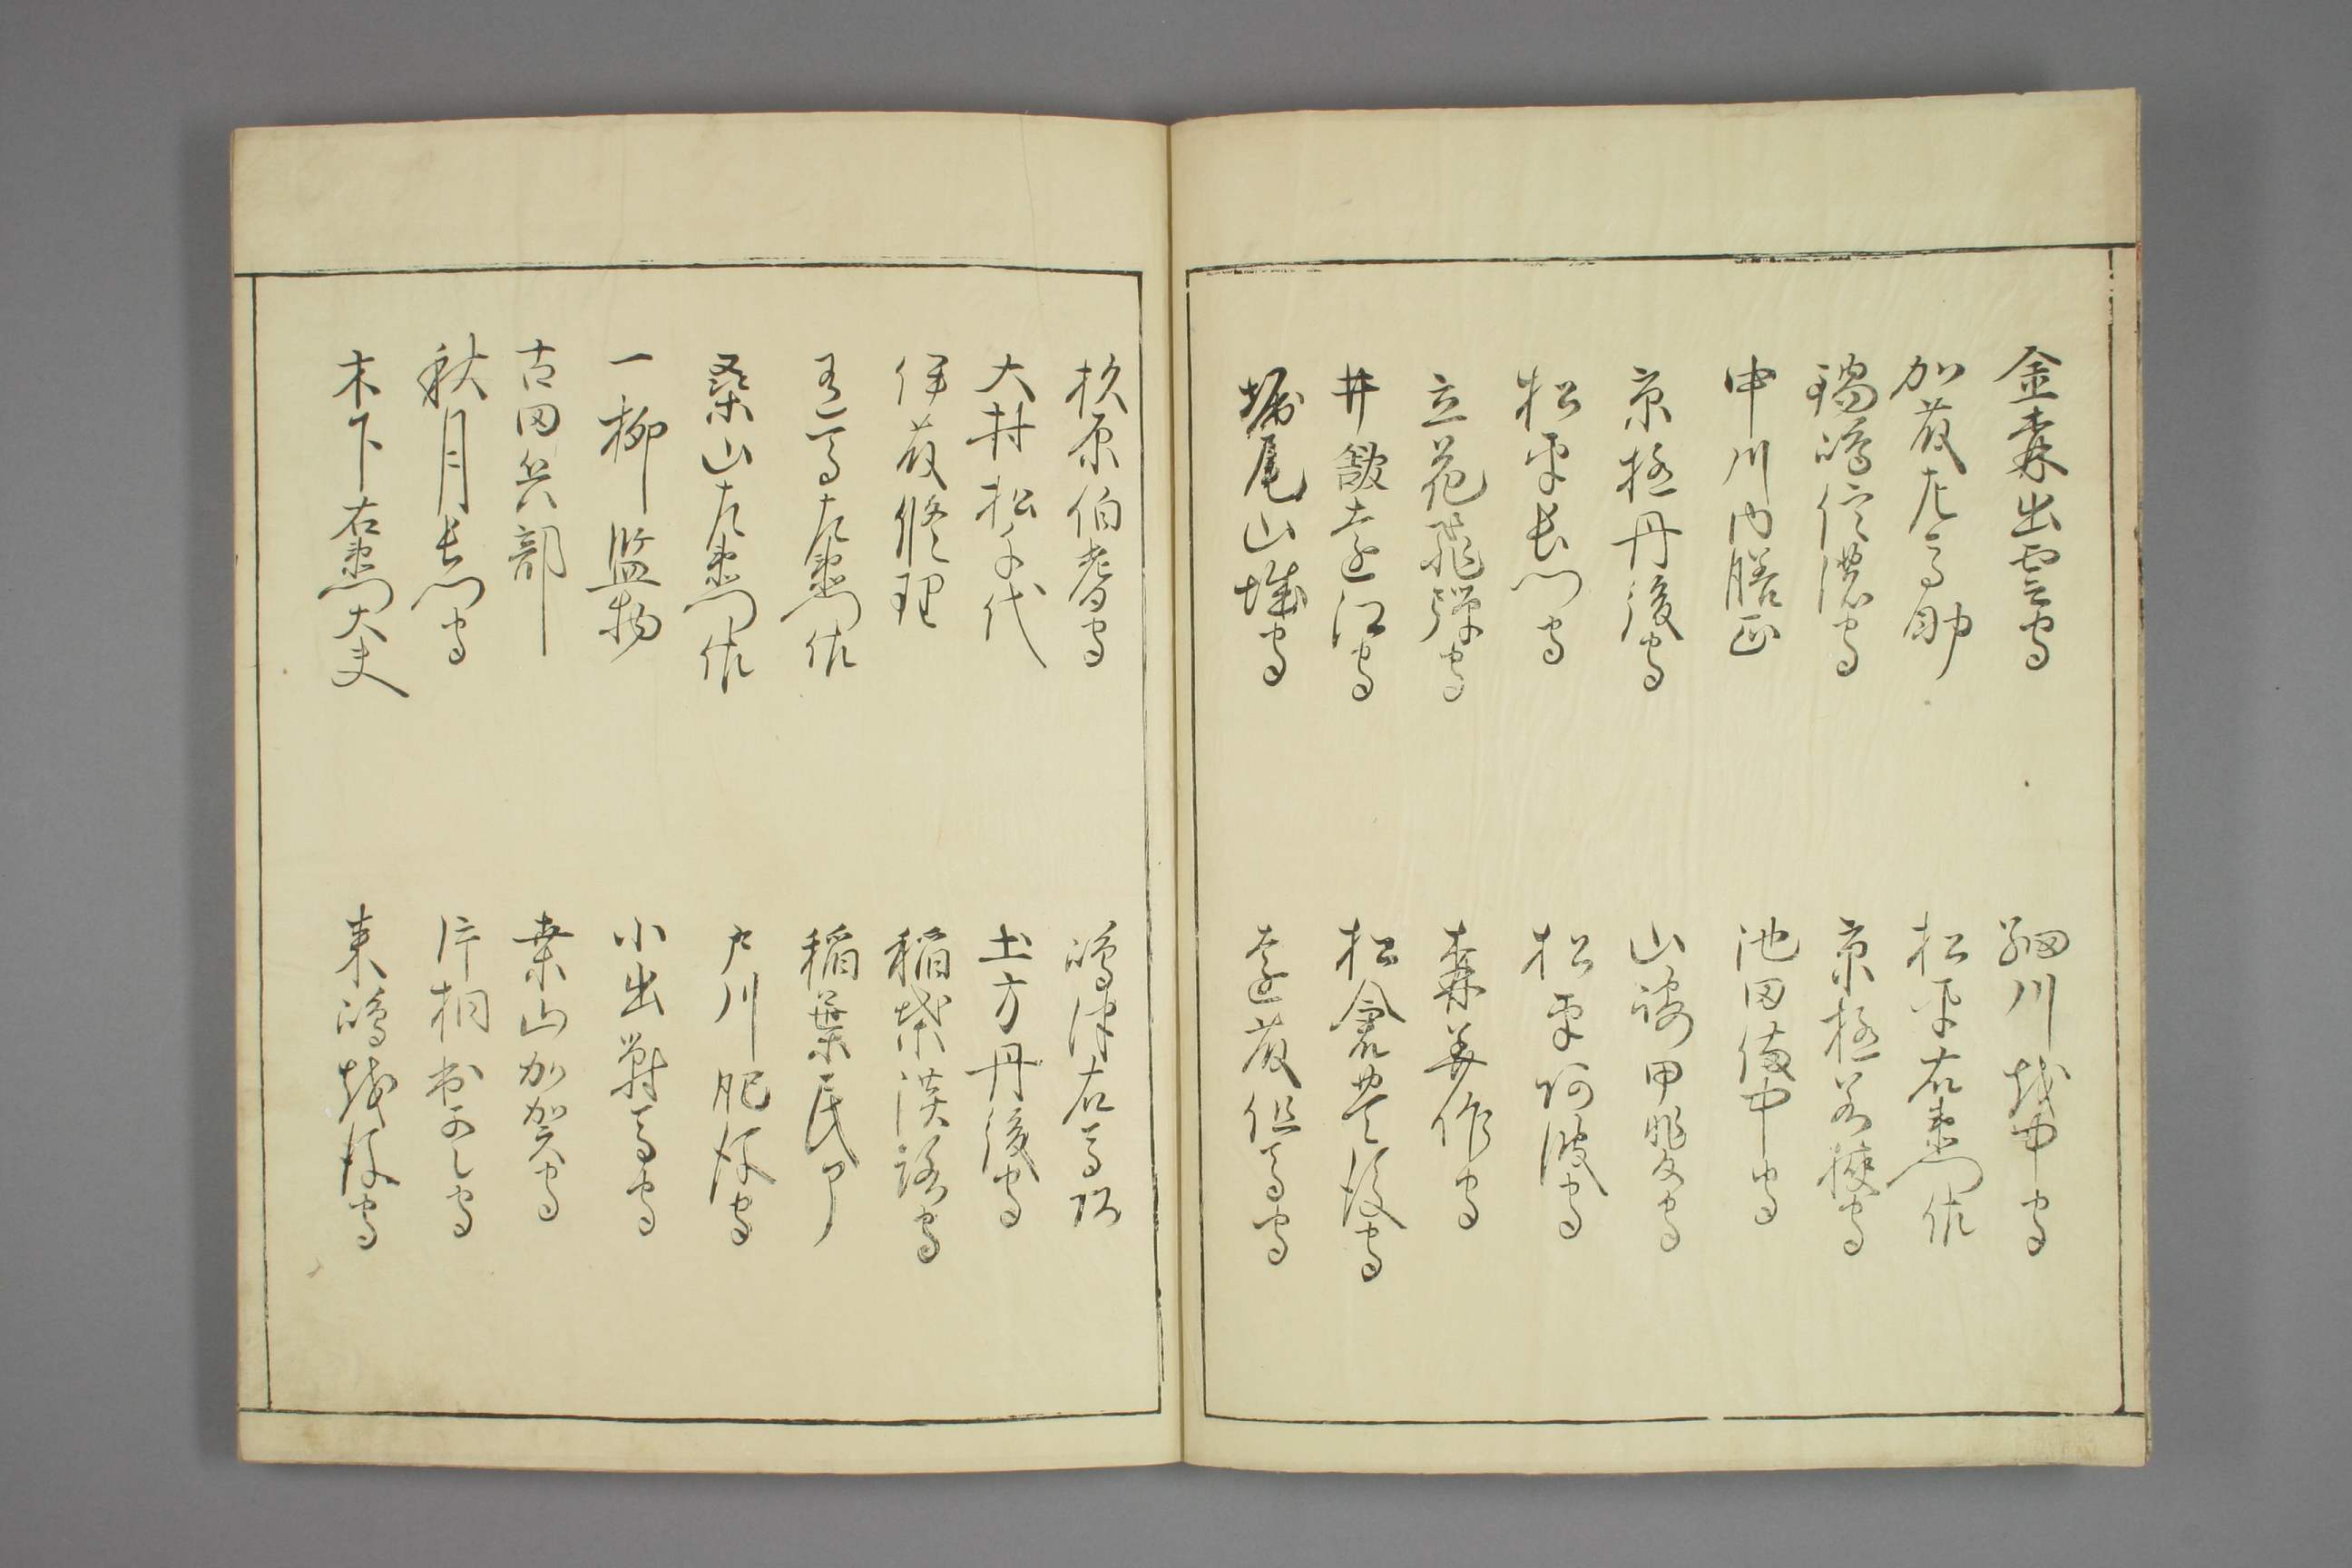 金森出雲守　細川越中守
加藤左馬助　松平右衛門佐
鍋嶋信濃守　京極若狭守
中川内膳正　池田備中守
京極丹後守　山崎甲斐守
松平長門守　松平阿波守
立花飛弾守　森美作守
井舘遠江守　松倉豊後守
堀尾山城守　遠藤但馬守
杉原伯耆守　嶋津右馬頭
大村松千代　土方丹後守
伊藤修理　稲葉淡路守
有馬左衛門佐　稲葉民部
桑山左衛門佐　戸川肥後守
一柳監物　小出對馬守
古田兵部　桑山加賀守
秋月長門守　片桐出雲守
木下右衛門大夫　来嶋越後守